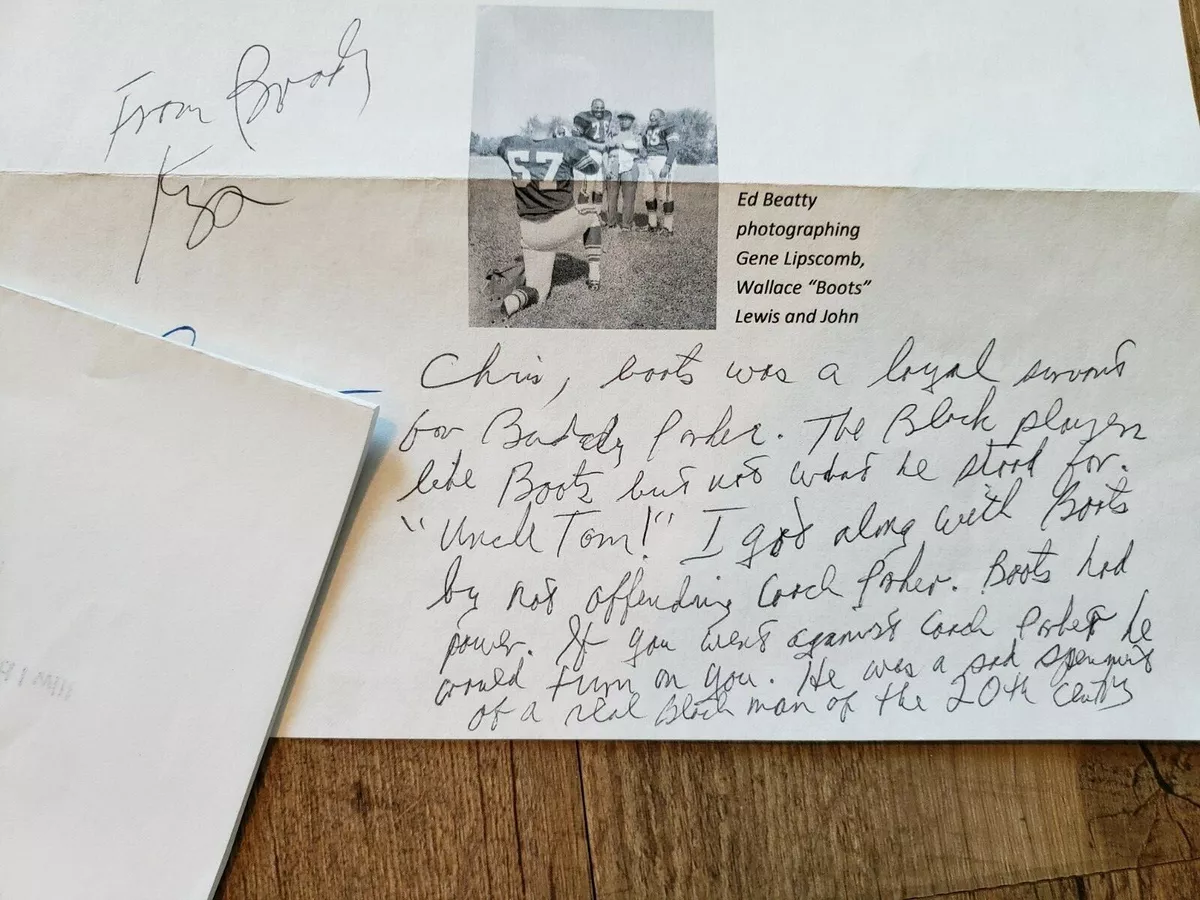 From Brady
Key
57
Ed Beatty
photographing
Gene Lipscomb,
Wallace “Boots”
Lewis and John
Chris, boots was a loyal servant
for Buddy Parker. The Black players
like Boots but not what he stood for.
"Uncle Tom!" I got along with Boots
by not offending Coach Parker. Boots had
power. If you went against Coach Parker he
would turn on you. He was a sad
of a real Black man of the 20th Century